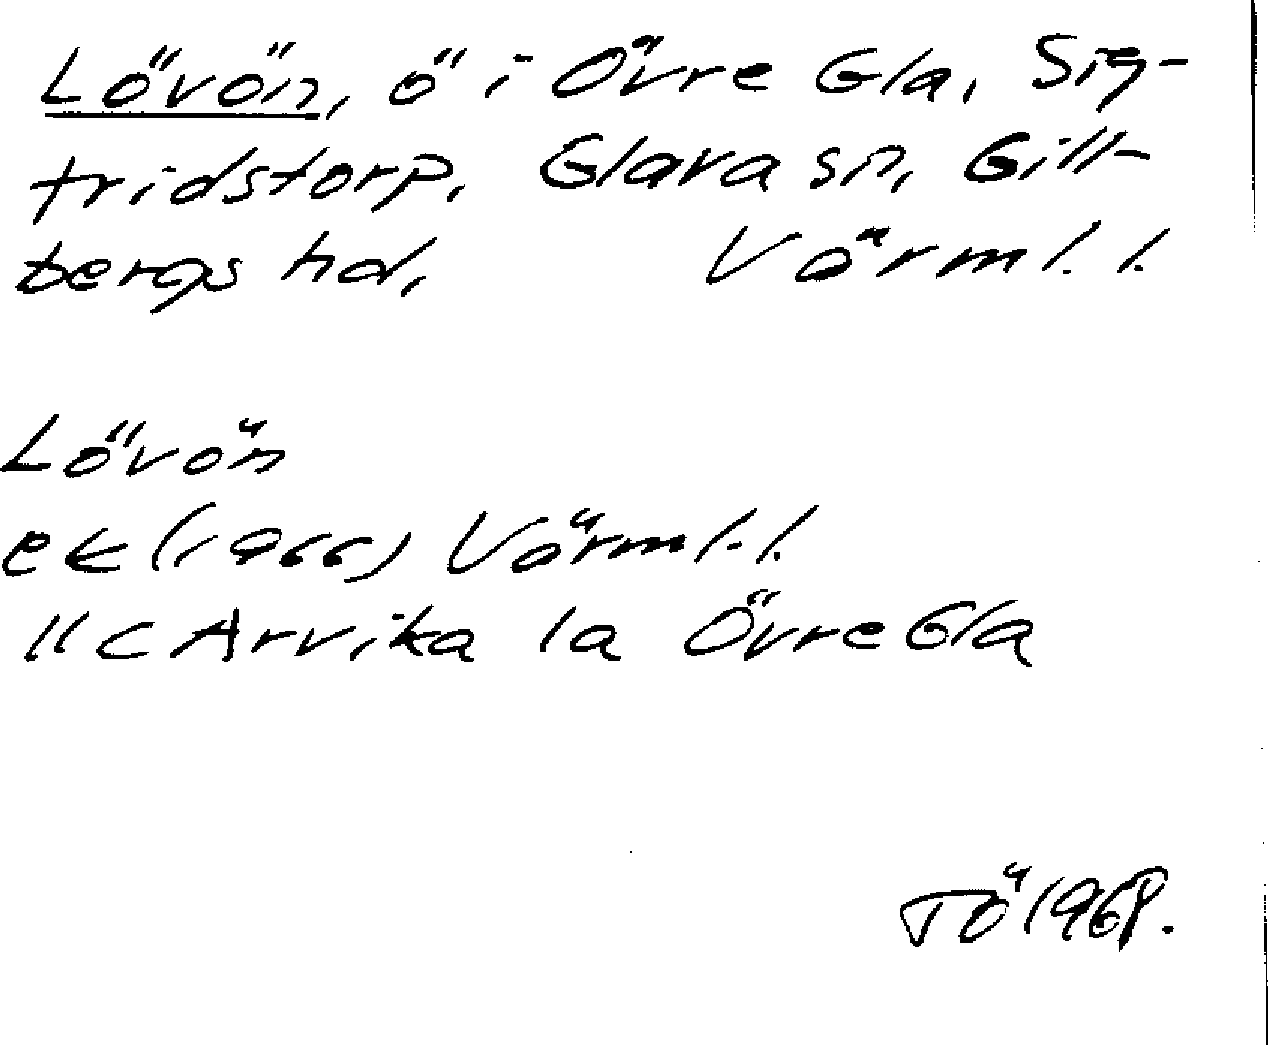 Lövön, ö i Övre Gla, Sig-
fridstorp, Glava sn, Gill-
bergs hd, Värml. l.
Lövön
ek (1966) Värml. l.
11c Arvika 1a Övre Gla
TÖ 1968.